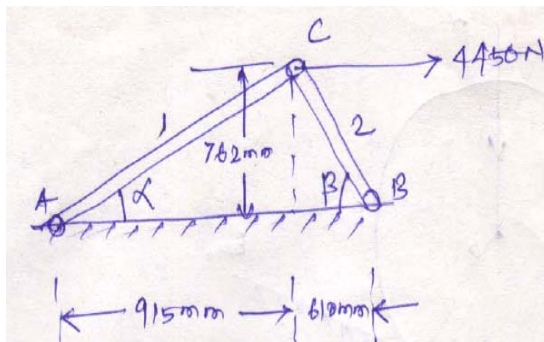 C
4450N
1
2
762mm
A
α
β
B
915mm
610mm